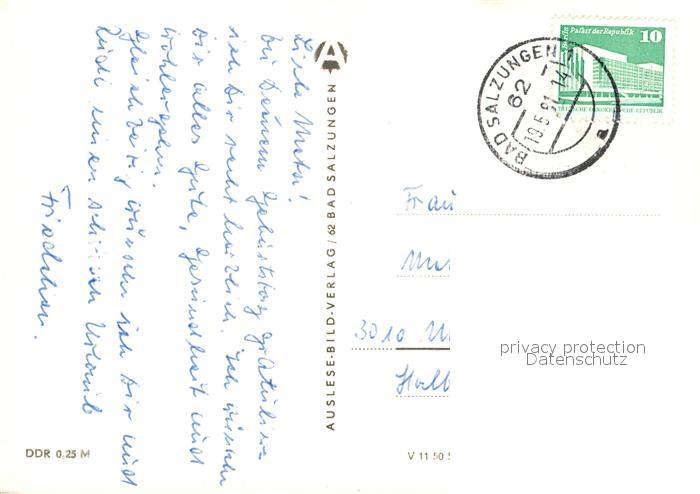 Liebe Meta!
Zu Deinem Geburtstag gratuliere
ich Dir recht herzlich. Ich wünsche
Dir alles Gute, Gesundheit und
Wohlergehn.
Gleichzeitig wünsche ich Dir und
einen schönen Urlaub
Friedchen.
AUSLESE-BILD-VERLAG / 62 BAD SALZUNGEN
Berlin Palast der Republik
10
DEUTSCHE DEMOKRATISCHE REPUBLIK
BAD SALZUNGEN 1
62
19.5.81
a
Frau
3010 M
Halb
privacy protection
Datenschutz
DDR 0,25 M
V 11 50